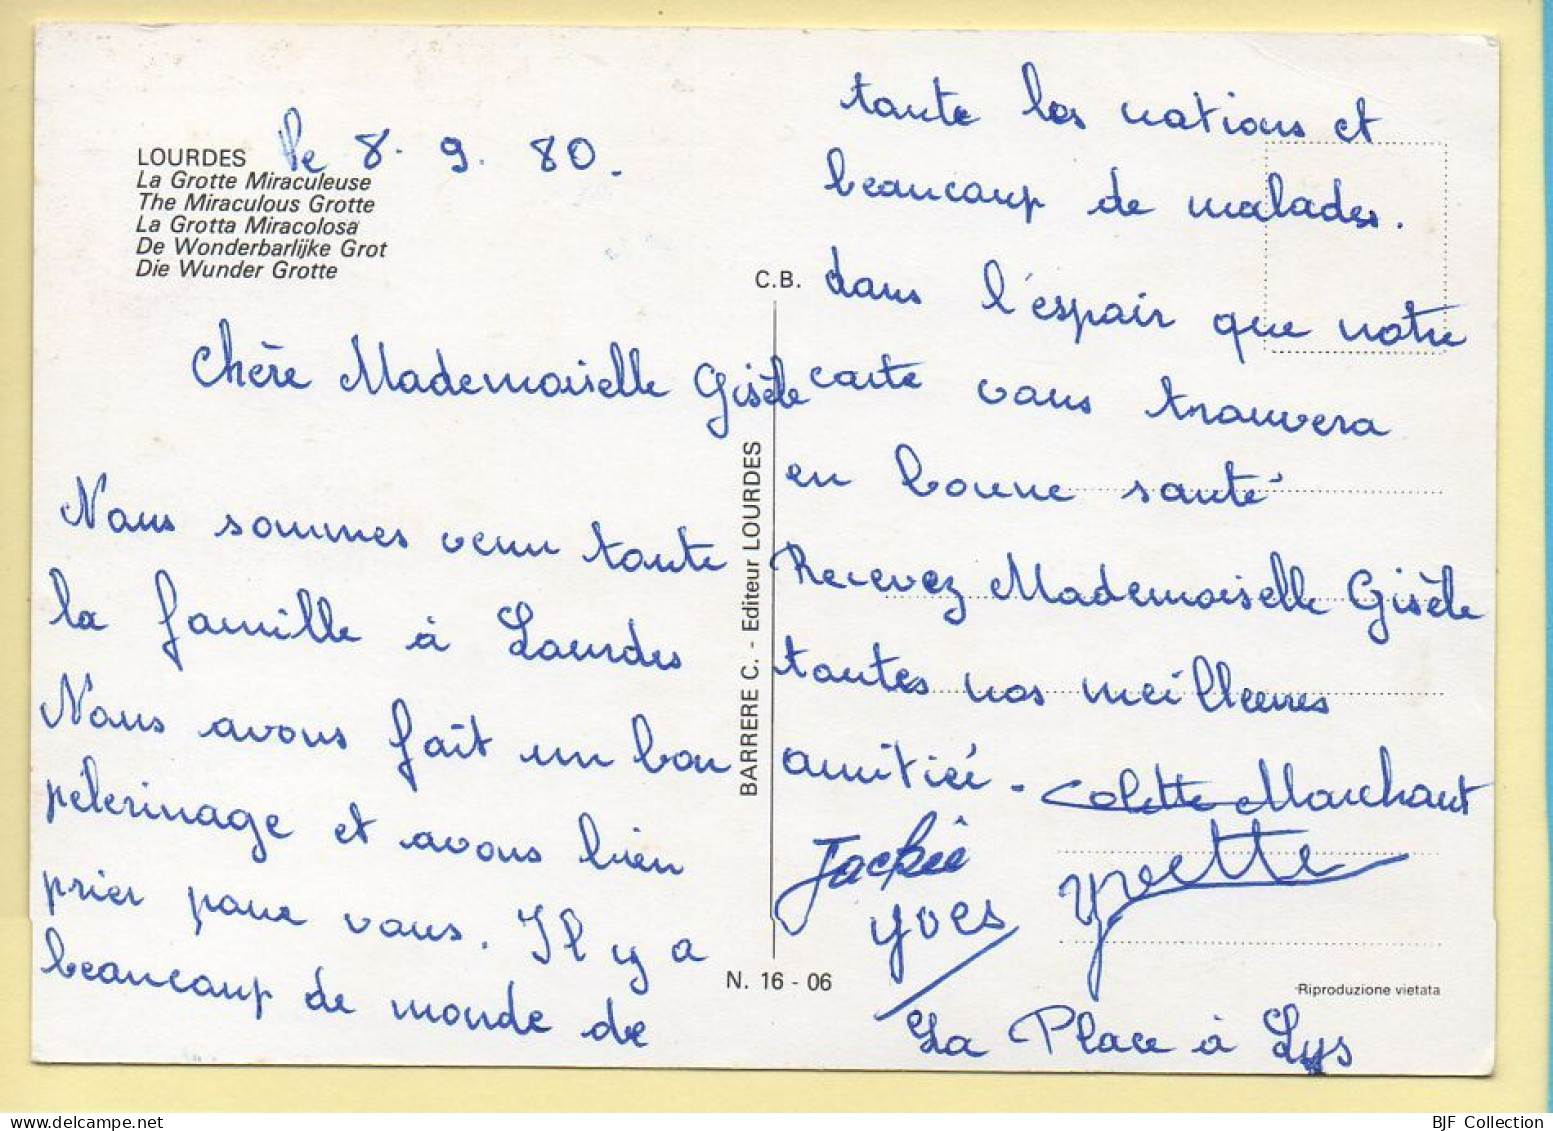 LOURDES
La Grotte Miraculeuse
The Miraculous Grotte
La Grotta Miracolosa
De Wonderbarlijke Grot
Die Wunder Grotte
le 8. 9. 80.
Chère Mademoiselle Gisèle
Nous sommes venu toute
la famille à Lourdes
Nous avons fait un bon
pélerinage et avons bien
prier pour vous. Il y a
beaucoup de monde de
toute les nations et
beaucoup de malades.
dans l'espoir que notre
carte vous trouvera
en bonne santé
Recevez Mademoiselle Gisèle
toutes nos meilleures
amitiée.
Colette Marchant
Jackie
Yvette
Yves
La Place à Lys
C.B.
BARRERE C. - Editeur LOURDES
N. 16 - 06
Riproduzione vietata
BJF Collection